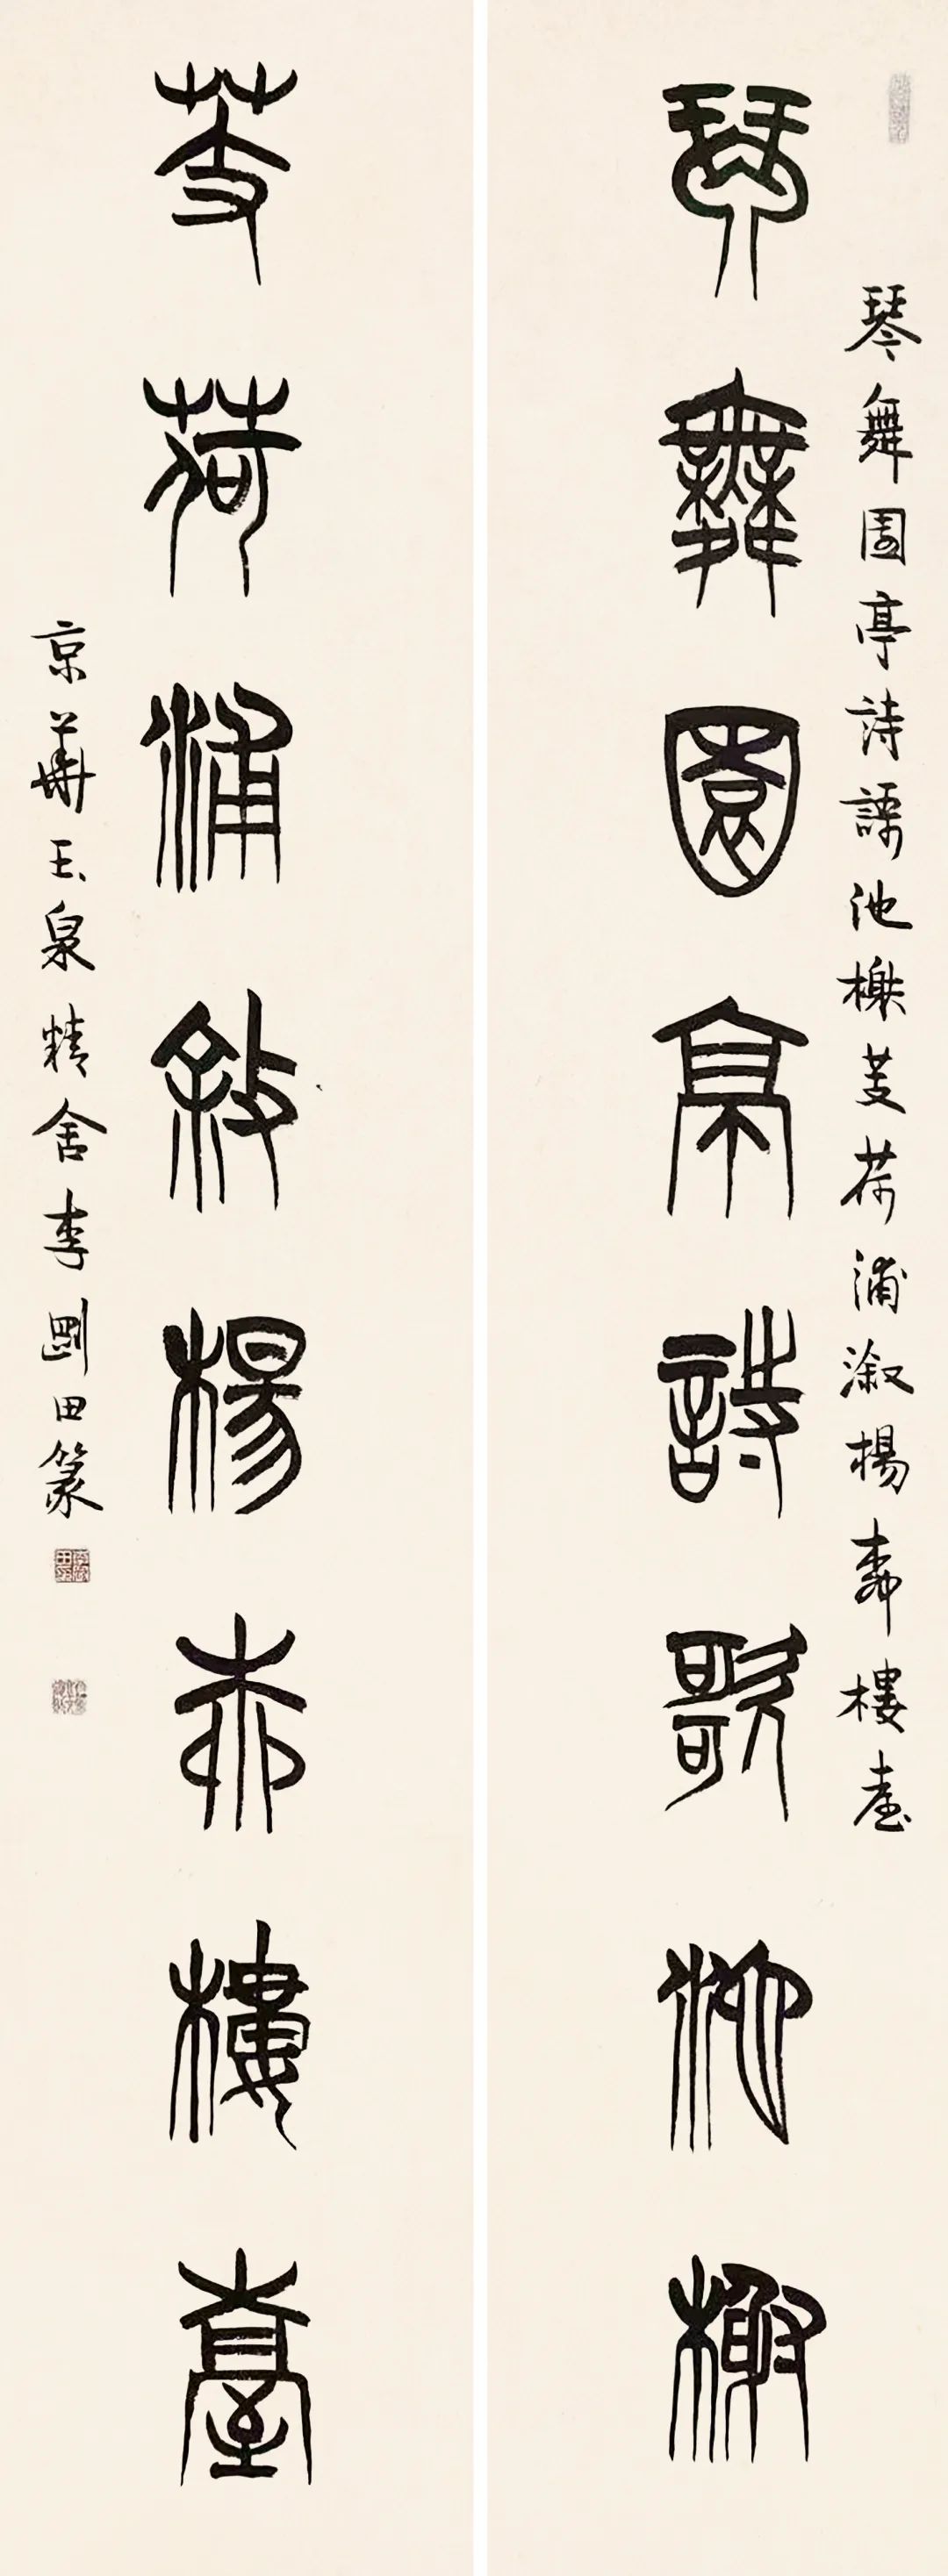 琴舞園亭詩謌池榭芰荷浦溆楊桺樓臺
琴舞園亭詩歌池榭
芰荷浦敘楊桺樓臺
京華玉泉精舍李剛田篆